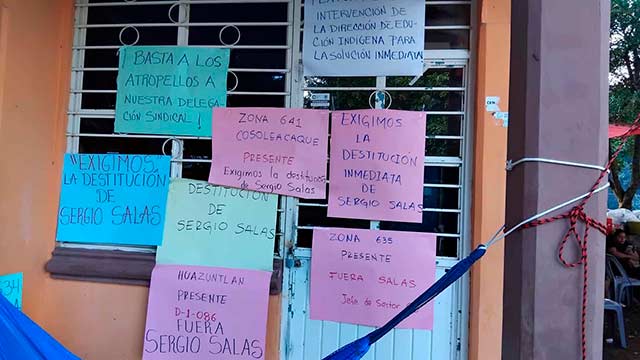 INTERVENCIÓN DE
LA DIRECCIÓN DE EDU-
CIÓN INDIGENA PARA
LA SOLUCIÓN INMEDIATA
¡BASTA A LOS
ATROPELLOS A
NUESTRA DELEGA-
CIÓN SINDICAL!
ZONA 641
COSOLEACAQUE
PRESENTE
Exigimos la destitución
de Sergio Salas
EXIGIMOS
LA
DESTITUCIÓN
INMEDIATA
DE
SERGIO SALAS
"EXIGIMOS
LA DESTITUCIÓN
DE
SERGIO SALAS
DESTITUCIÓN
DE
SERGIO SALAS
ZONA 635
PRESENTE
FUERA SALAS
Jefe de Sector
HUAZUNTLAN
PRESENTE
D-1-086
FUERA
SERGIO SALAS
634